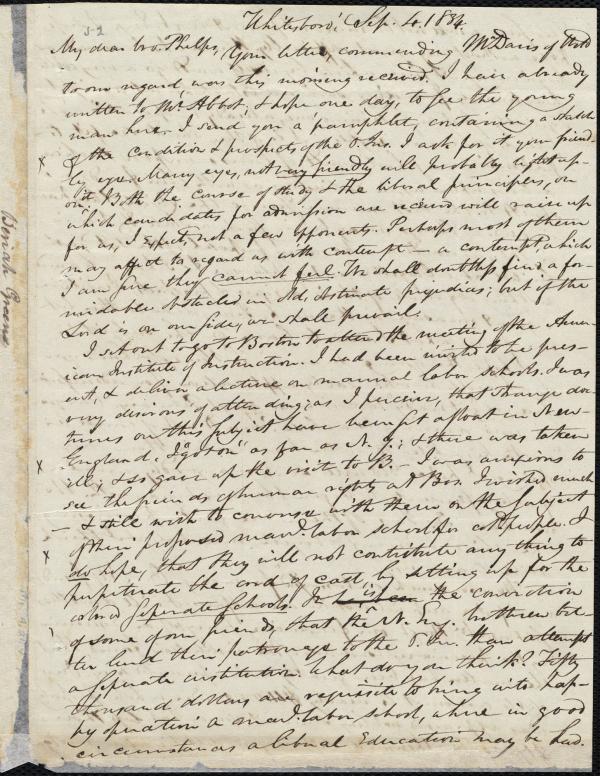 5-2
Whitesboro', Sep. 4, 1834.
My dear bro. Phelps, Your letter, commending Mr Davis of
to our regard was this morning received. I have already
written to Mr Abbot, & hope one day, to see the young
man here. I send you a pamphlet, containing a sketch
of the condition & prospects of the O. Ins. I ask for it your friend-
ly eye. Many eyes, not very friendly will probably light up-
on it. Both the course of study & the liberal principles, on
which candidates for admission are received will raise up
for us, I expect, not a few opponents. Perhaps most of them
may affect to regard us with contempt — a contempt which
I am sure they cannot feel. We shall doubtless find a for-
midable obstacle in old, obstinate prejudices; but if the
Lord is on our side, we shall prevail.
I set out to go to Boston to attend the meeting of the Amer-
ican Institute of Instruction. I had been invited to be pres-
ent, & deliver a lecture on manual labor schools. I was
very desirous of attending; as I perceive, that strange doc-
trines on this subject have been set afloat in New-
England. I "got on" as far as N. Y.; & there was taken
ill; & so gave up the visit to B. — I was anxious to
see the friends of human rights at Bos. I wished much
— & still wish to converse with them on the subject
of their proposed man. labor school for col. people. I
do hope, that they will not contribute any thing to
perpetuate the cord of cast, by setting up for the
colored seperate schools. It is the conviction
of some of our friends, that the N. Eng. brethren bet-
ter lend their patronage to the O. In. than attempt
a seperate institution. What do you think? Fifty
thousand dollars are requisite to bring into hap-
py operation a man. labor school, where in good
circumstances a liberal Education may be had.
Beriah Greene